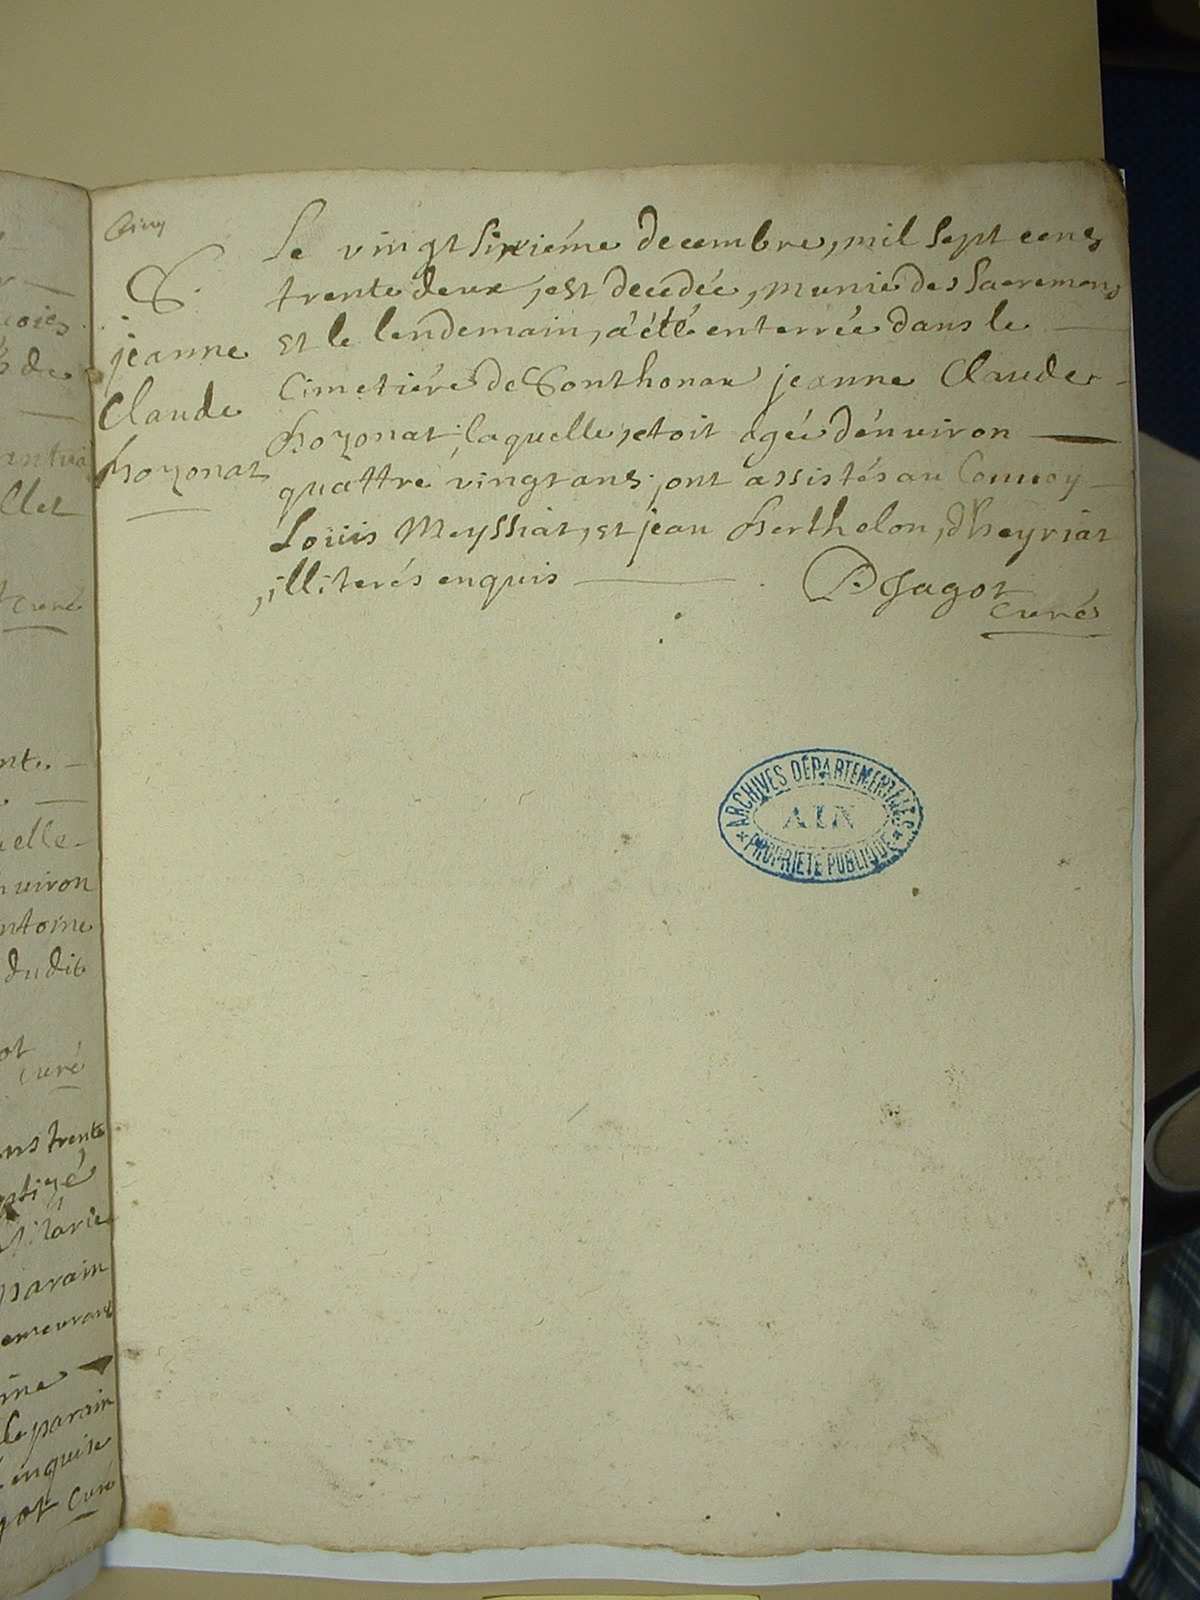 S.
jeanne
Claude
Bozonat
Le vingt sixiéme decembre, mil sept cens
trente deux, est decedée, munie des Sacremens
et le lendemain, a été enterrée dans le
Cimetiére de Sonthonax jeanne Claude
Bozonat, laquelle, etoit agée d'environ
quattre vingt ans, ont assistés au Convoy
Loüis Meyssiat, et jean Berthelon, d'heyriat
illiterés enquis
Jagot
curé
ARCHIVES DÉPARTEMENTALES
AIN
PROPRIÉTÉ PUBLIQUE
llet
curé
elle
uiron
ntoine
dudit
curé
ns trente
Marie
parain
le parain
enquise
curé